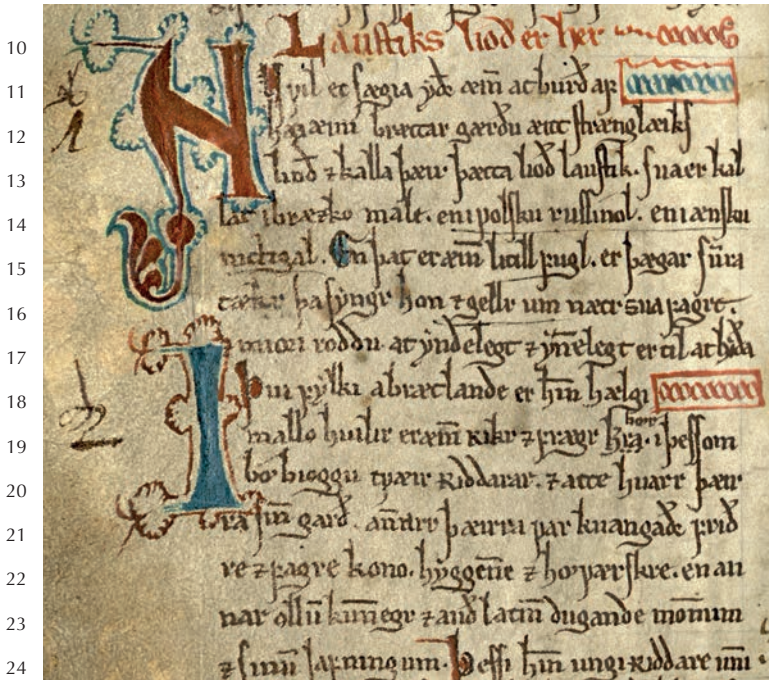 10 Laustiks lioð er her
11 Nv vil ec sægia yðr æin̅ atburð aꝼ
12 brættar gærðu æitt strænglæiks
13 lioð ⁊ kalla þæir þætta lioð laustik. sua er kal
14 lat i bræzko male. en i volsku russinol. en i ænsku
15 nictigal. En þat er æin̅ litill ꝼugl. er þægar sum̅ra
16 tækr þa syngr hon ⁊ gellr um nætr sua ꝼagre.
17 miori roddu. at yndelegt ⁊ yn̅elegt er til at lyða
18 I þui ꝼylki a brætlande er hin̅ hælgi
19 mallo huilir er æin̅ rikr ⁊ ꝼrægr i þessom
20 bø bioggu tvæir riddarar. ⁊ atte huarr þæir
21 ra sin̅ garð. an̅arr þæirra var kuangaðr ꝼrið
22 re ⁊ ꝼagre kono. hyggen̅e ⁊ høværskre. en an
23 nar ollu̅ kun̅egr ⁊ and latin̅ dugande mon̅um
24 ⁊ sinu̅ jaꝼningum. Þessi hin̅ ungi riddare un̅i